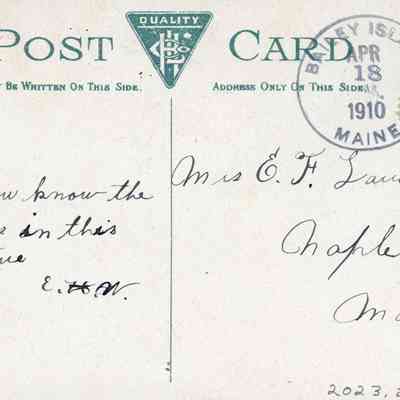 POST CARD
QUALITY
BE WRITTEN ON THIS SIDE. ADDRESS ONLY ON THIS SIDE.
BAILEY ISL
APR
18
1910
MAINE
know the
in this
E. H W.
Mrs E. F.
Naple
Ma
2023.